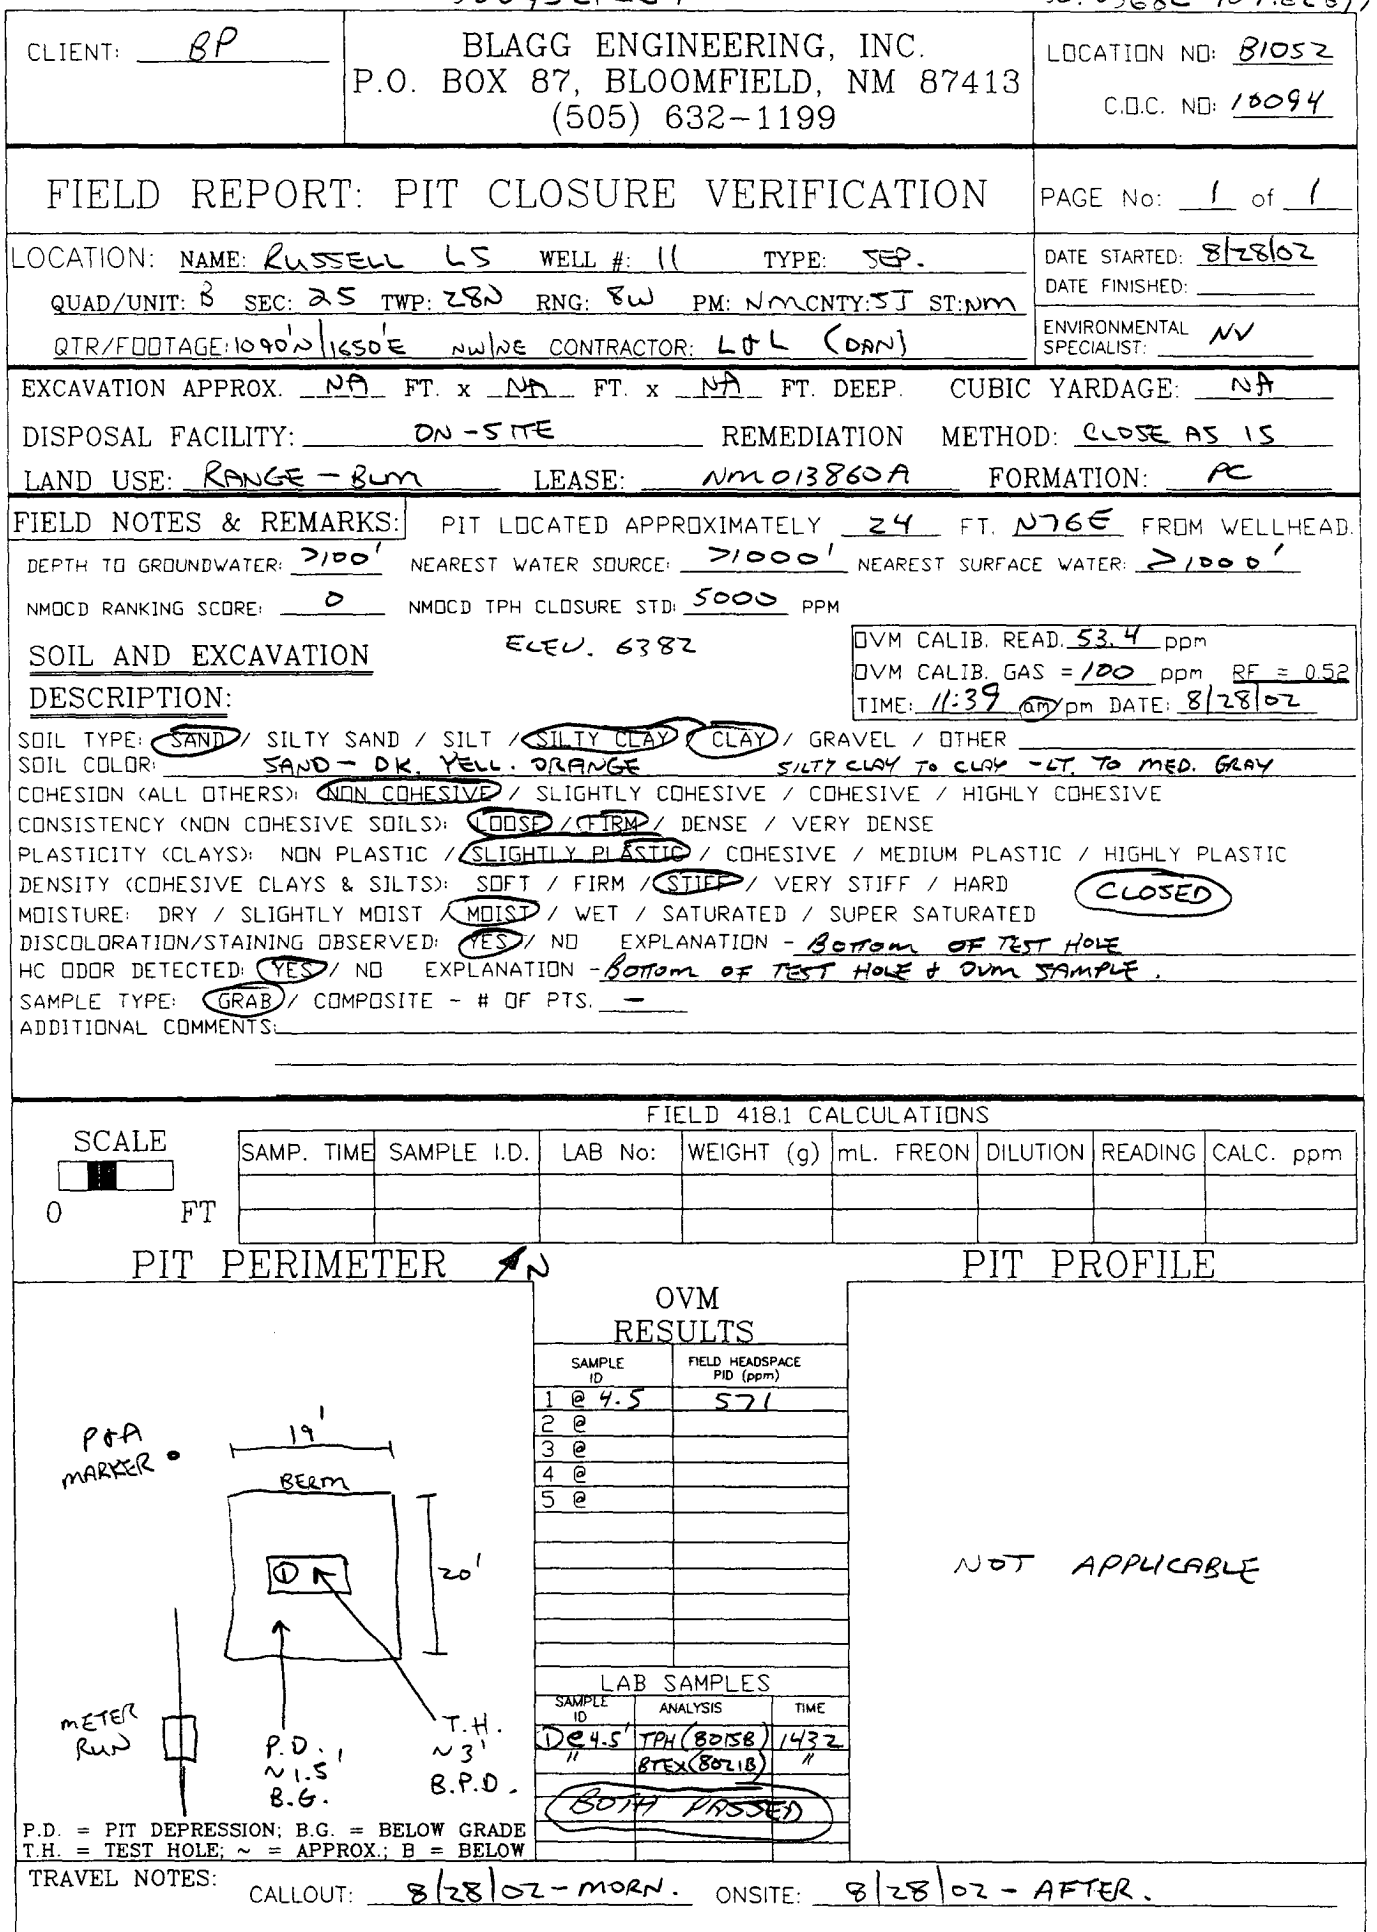 CLIENT: BP
BLAGG ENGINEERING, INC.
P.O. BOX 87, BLOOMFIELD, NM 87413
(505) 632-1199
LOCATION NO: B1052
C.O.C. NO: 10094
FIELD REPORT: PIT CLOSURE VERIFICATION
PAGE No: 1 of 1
LOCATION: NAME: RUSSELL LS WELL #: 11 TYPE: SEP.
QUAD/UNIT: B SEC: 25 TWP: 28N RNG: 8W PM: NM CNTY: SJ ST: NM
QTR/FOOTAGE: 1090'N/1650'E NW/NE CONTRACTOR: L&L (DAN)
DATE STARTED: 8/28/02
DATE FINISHED:
ENVIRONMENTAL SPECIALIST: NV
EXCAVATION APPROX. NA FT. x NA FT. x NA FT. DEEP. CUBIC YARDAGE: NA
DISPOSAL FACILITY: ON-SITE REMEDIATION METHOD: CLOSE AS IS
LAND USE: RANGE - BLM LEASE: NM013860A FORMATION: PC
FIELD NOTES & REMARKS: PIT LOCATED APPROXIMATELY 24 FT. N76E FROM WELLHEAD.
DEPTH TO GROUNDWATER: >100' NEAREST WATER SOURCE: >1000' NEAREST SURFACE WATER: >1000'
NMOCD RANKING SCORE: 0 NMOCD TPH CLOSURE STD: 5000 PPM
SOIL AND EXCAVATION
DESCRIPTION:
ELEV. 6382
OVM CALIB. READ. 53.4 ppm
OVM CALIB. GAS = 100 ppm RF = 0.52
TIME: 11:39 am/pm DATE: 8/28/02
SOIL TYPE: SAND / SILTY SAND / SILT / SILTY CLAY / CLAY / GRAVEL / OTHER
SOIL COLOR: SAND - DK. YELL. ORANGE SILTY CLAY TO CLAY - LT. TO MED. GRAY
COHESION (ALL OTHERS): NON COHESIVE / SLIGHTLY COHESIVE / COHESIVE / HIGHLY COHESIVE
CONSISTENCY (NON COHESIVE SOILS): LOOSE / FIRM / DENSE / VERY DENSE
PLASTICITY (CLAYS): NON PLASTIC / SLIGHTLY PLASTIC / COHESIVE / MEDIUM PLASTIC / HIGHLY PLASTIC
DENSITY (COHESIVE CLAYS & SILTS): SOFT / FIRM / STIFF / VERY STIFF / HARD
CLOSED
MOISTURE: DRY / SLIGHTLY MOIST / MOIST / WET / SATURATED / SUPER SATURATED
DISCOLORATION/STAINING OBSERVED: YES / NO EXPLANATION - BOTTOM OF TEST HOLE
HC ODOR DETECTED: YES / NO EXPLANATION - BOTTOM OF TEST HOLE & OVM SAMPLE.
SAMPLE TYPE: GRAB / COMPOSITE - # OF PTS. —
ADDITIONAL COMMENTS:
FIELD 418.1 CALCULATIONS
SCALE
0 FT
SAMP. TIME SAMPLE I.D. LAB No: WEIGHT (g) mL. FREON DILUTION READING CALC. ppm
PIT PERIMETER N
PIT PROFILE
OVM
RESULTS
SAMPLE ID FIELD HEADSPACE PID (ppm)
1 @ 4.5 571
2 @
3 @
4 @
5 @
P&A
MARKER
19'
BERM
20'
1
METER
RUN
P.D.
~1.5'
B.G.
T.H.
~3'
B.P.D.
NOT APPLICABLE
LAB SAMPLES
SAMPLE ID ANALYSIS TIME
1@4.5' TPH (8015B) 1432
" BTEX (8021B) "
BOTH PASSED
P.D. = PIT DEPRESSION; B.G. = BELOW GRADE
T.H. = TEST HOLE; ~ = APPROX.; B = BELOW
TRAVEL NOTES: CALLOUT: 8/28/02 - MORN. ONSITE: 8/28/02 - AFTER.